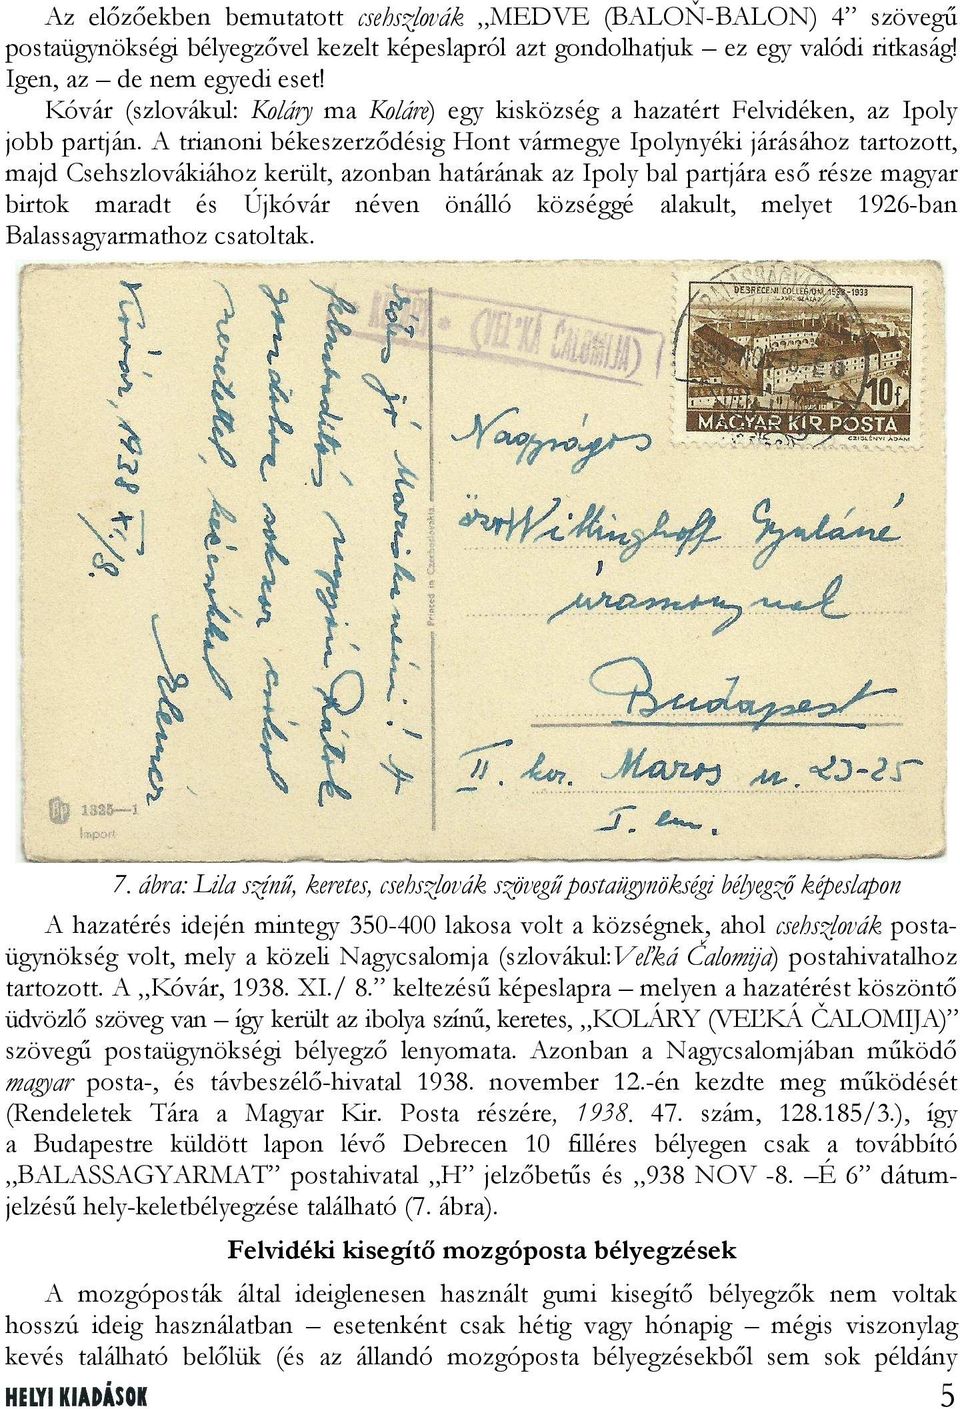 Az előzőekben bemutatott csehszlovák „MEDVE (BALOŇ-BALON) 4 szövegű
postaügynökségi bélyegzővel kezelt képeslapról azt gondolhatjuk – ez egy valódi ritkaság!
Igen, az – de nem egyedi eset!
Kóvár (szlovákul: Koláry ma Koláre) egy kisközség a hazatért Felvidéken, az Ipoly
jobb partján. A trianoni békeszerződésig Hont vármegye Ipolynyéki járásához tartozott,
majd Csehszlovákiához került, azonban határának az Ipoly bal partjára eső része magyar
birtok maradt és Újkóvár néven önálló községgé alakult, melyet 1926-ban
Balassagyarmathoz csatoltak.
(VEĽKÁ ČALOMIJA)
DEBRECENI COLLEGIUM 1538-1938
10f
MAGYAR KIR. POSTA
Kóvár, 1938 XI./8.
szeretettel,
gondolva sokszor
felszabadítás
jó Mariska néni! A
Elemér
Printed in Czechoslovakia
Nagyságos
özv Wittinghoff Gyuláné
úrasszonynak
Budapest
II. ker. Maros u. 23-25
I. em.
1325—1
Import
7. ábra: Lila színű, keretes, csehszlovák szövegű postaügynökségi bélyegző képeslapon
A hazatérés idején mintegy 350-400 lakosa volt a községnek, ahol csehszlovák posta-
ügynökség volt, mely a közeli Nagycsalomja (szlovákul:Veľká Čalomija) postahivatalhoz
tartozott. A „Kóvár, 1938. XI./ 8.” keltezésű képeslapra – melyen a hazatérést köszöntő
üdvözlő szöveg van – így került az ibolya színű, keretes, „KOLÁRY (VEĽKÁ ČALOMIJA)”
szövegű postaügynökségi bélyegző lenyomata. Azonban a Nagycsalomjában működő
magyar posta-, és távbeszélő-hivatal 1938. november 12.-én kezdte meg működését
(Rendeletek Tára a Magyar Kir. Posta részére, 1938. 47. szám, 128.185/3.), így
a Budapestre küldött lapon lévő Debrecen 10 filléres bélyegen csak a továbbító
„BALASSAGYARMAT” postahivatal „H” jelzőbetűs és „938 NOV -8. –É 6” dátum-
jelzésű hely-keletbélyegzése található (7. ábra).
Felvidéki kisegítő mozgóposta bélyegzések
A mozgóposták által ideiglenesen használt gumi kisegítő bélyegzők nem voltak
hosszú ideig használatban – esetenként csak hétig vagy hónapig – mégis viszonylag
kevés található belőlük (és az állandó mozgóposta bélyegzésekből sem sok példány
HELYI KIADÁSOK
5